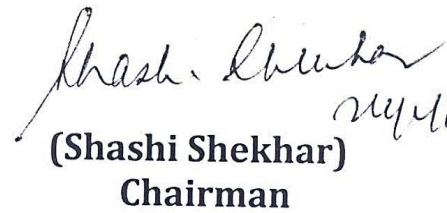 Shashi Shekhar
(Shashi Shekhar)
Chairman